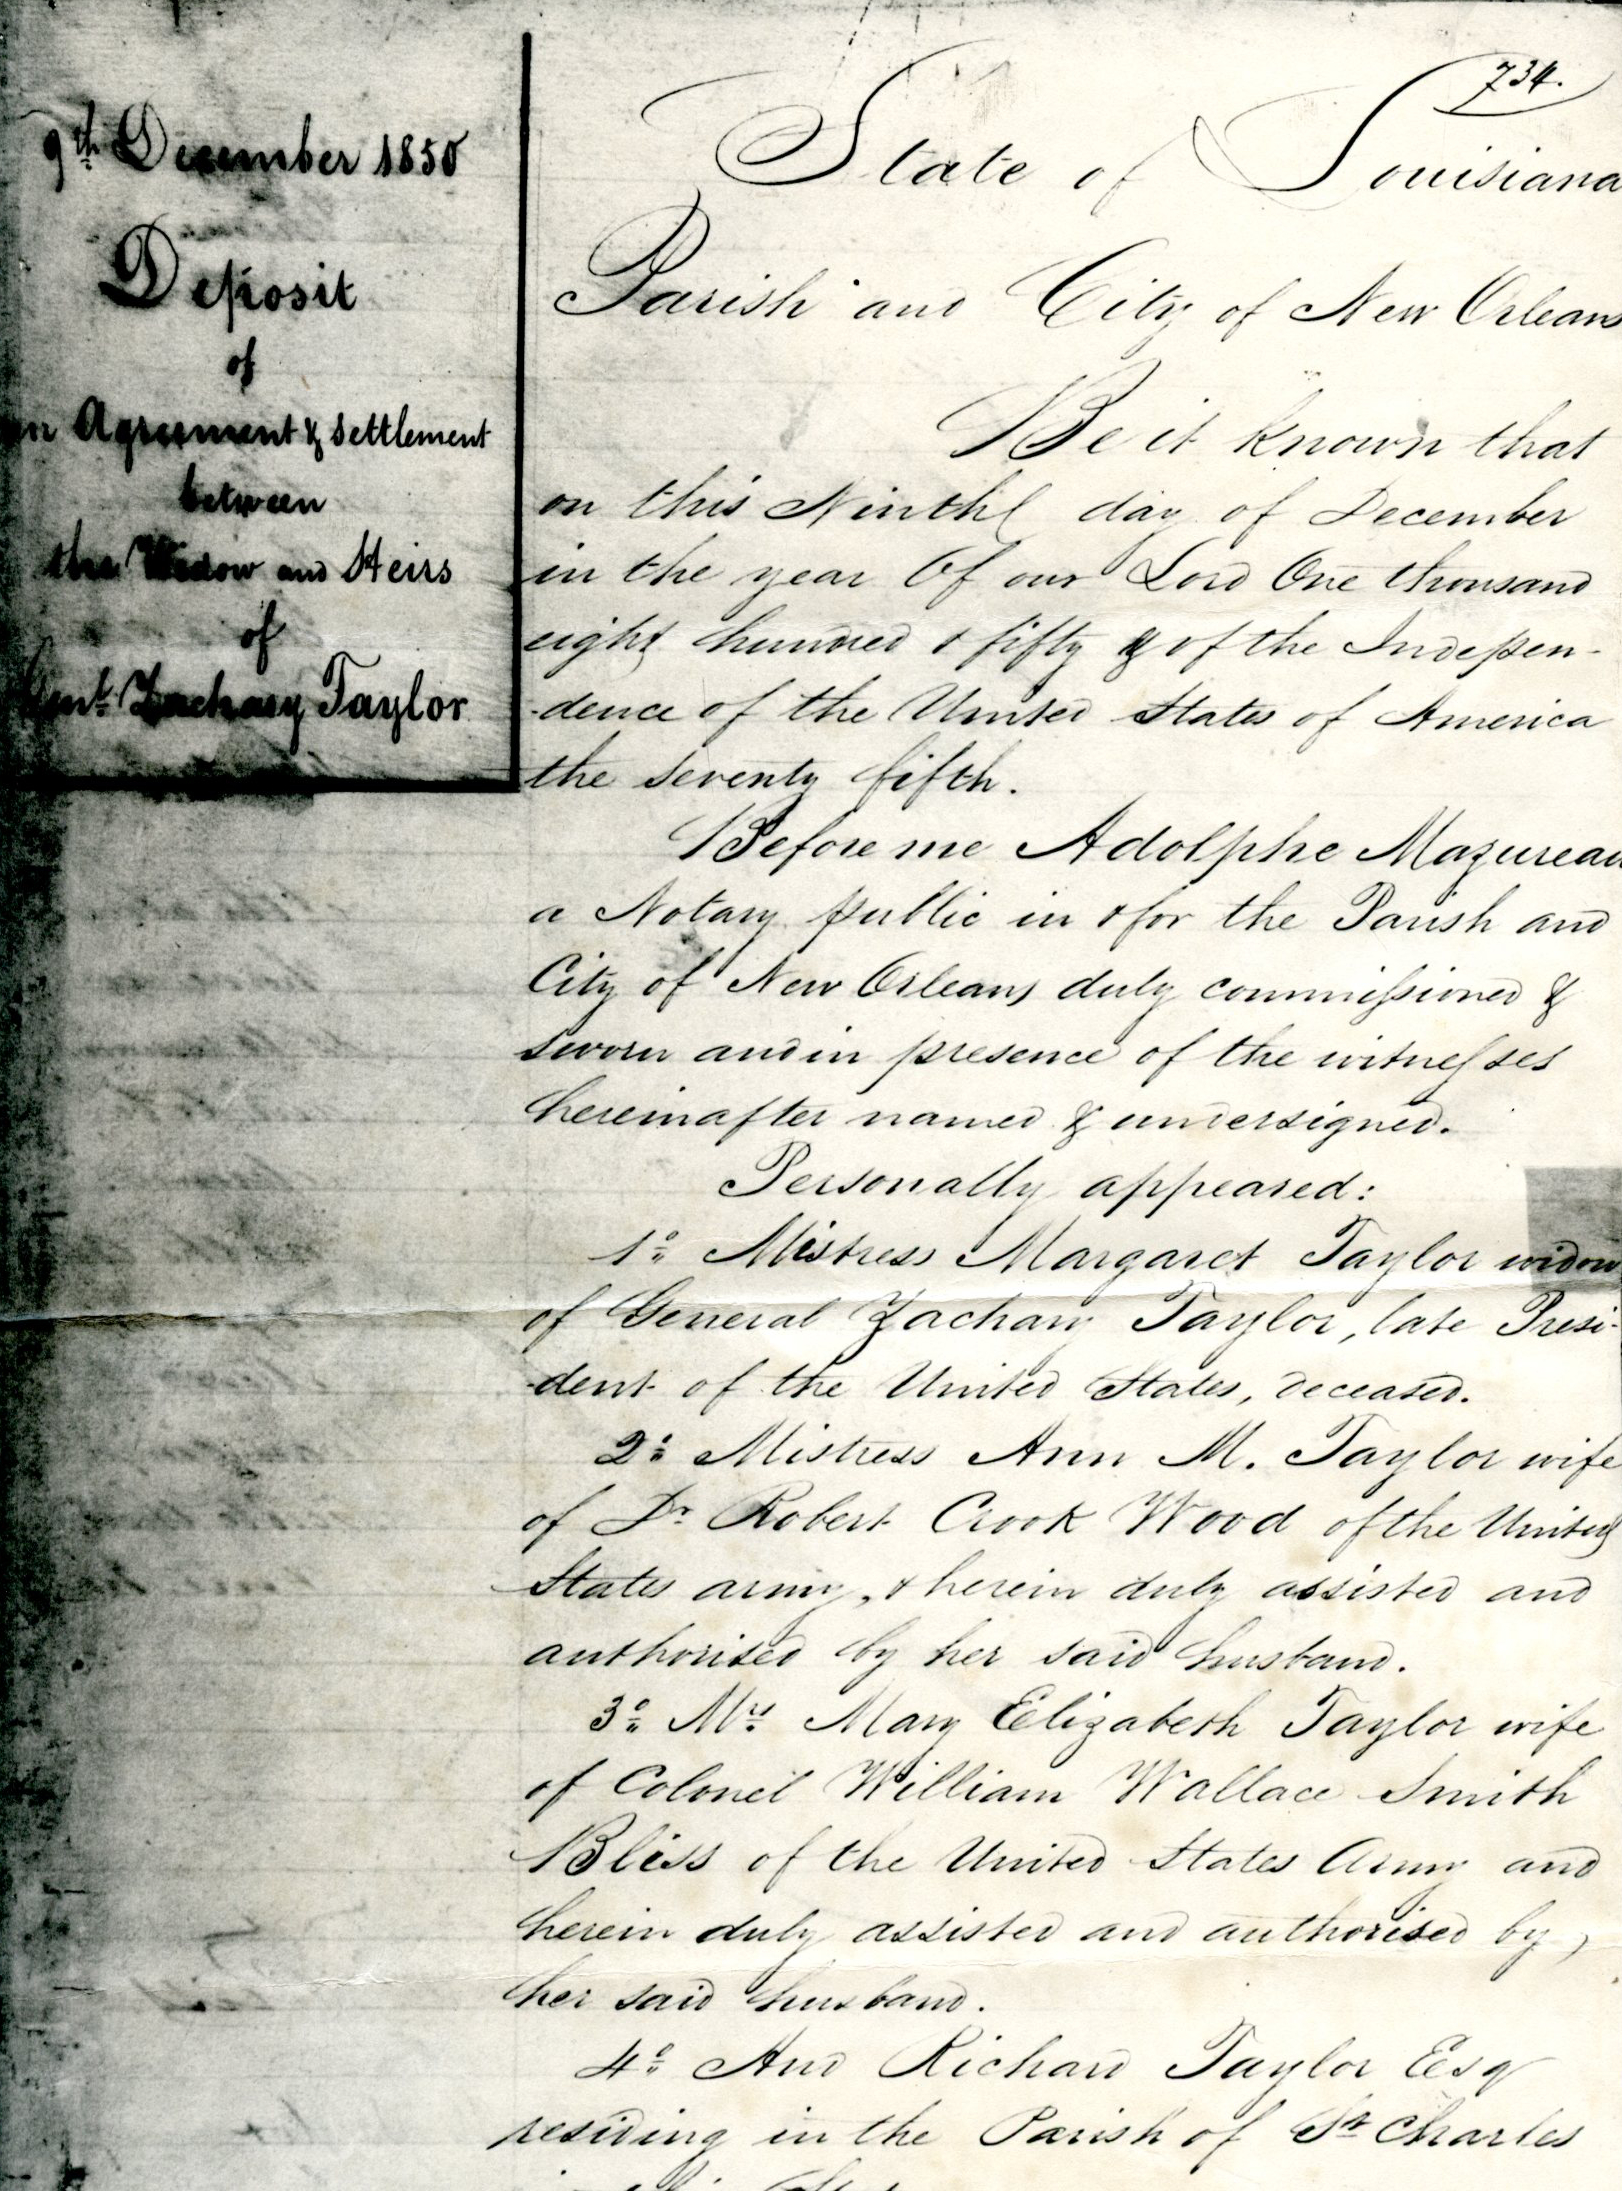 9th December 1850
Deposit
of
an Agreement & settlement
between
the Widow and Heirs
of
Genl Zachary Taylor
734.
State of Louisiana
Parish and City of New Orleans
Be it known that
on this Ninth day of December
in the year Of our Lord One thousand
eight hundred & fifty & of the Indepen-
-dence of the United States of America
the seventy fifth.
Before me Adolphe Mazureau
a Notary public in & for the Parish and
City of New Orleans duly commissioned &
sworn and in presence of the witnesses
hereinafter named & undersigned.
Personally appeared:
1o Mistress Margaret Taylor widow
of General Zachary Taylor, late Presi-
-dent of the United States, deceased.
2o Mistress Ann M. Taylor wife
of Dr Robert Crook Wood of the United
States army, & herein duly assisted and
authorised by her said husband.
3o Mrs Mary Elizabeth Taylor wife
of Colonel William Wallace Smith
Bliss of the United States Army and
herein duly assisted and authorised by
her said husband.
4o And Richard Taylor Esq
residing in the Parish of St Charles